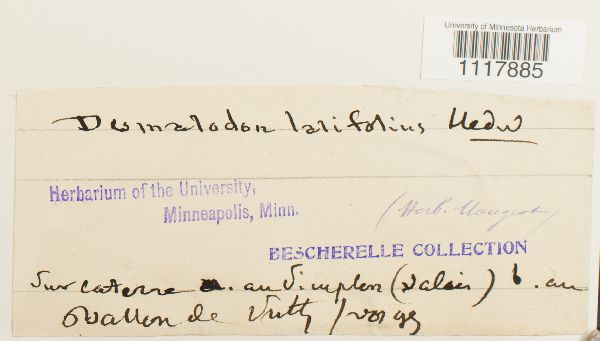 University of Minnesota Herbarium
1117885
Desmatodon latifolius Hedw
Herbarium of the University,
Minneapolis, Minn.
(Herb. Mougeot)
BESCHERELLE COLLECTION
Sur la terre a. au Simplon (Valais) b. au
Vallon de